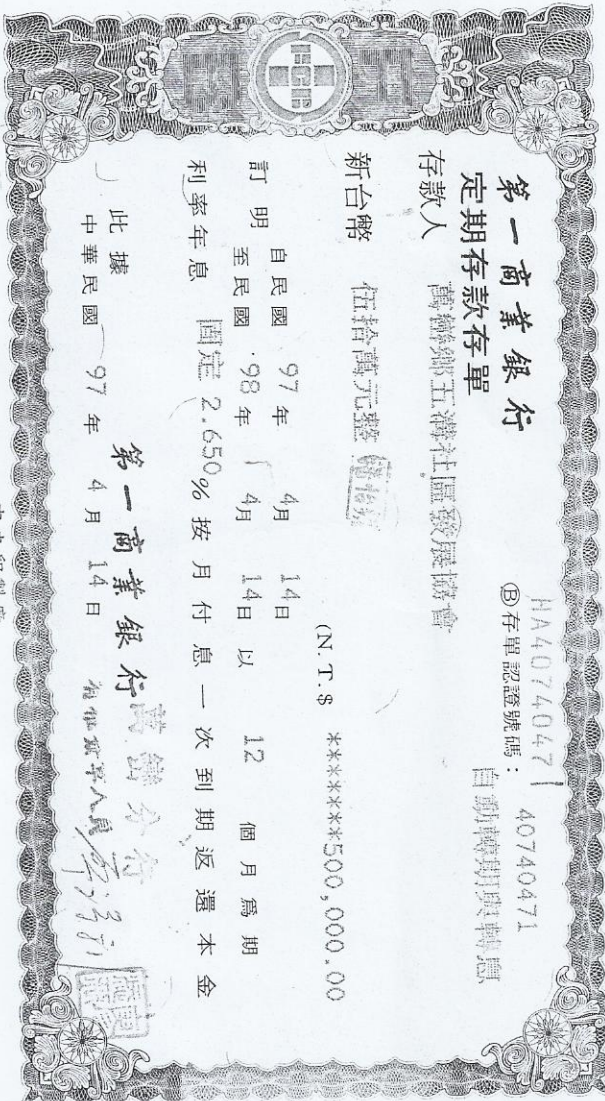 第一商業銀行
定期存款存單
HA4074047 1
Ⓑ存單認證號碼： 40740471
自動轉期與轉息
存款人 萬巒鄉五溝社區發展協會
新台幣 伍拾萬元整
(N.T.$ *******500,000.00
訂明 自民國 97年 4月 14日
至民國 98年 4月 14日 以 12 個月為期
利率年息 固定 2.650% 按月付息一次到期返還本金
此據 第一商業銀行 萬巒分行
中華民國 97年 4月 14日